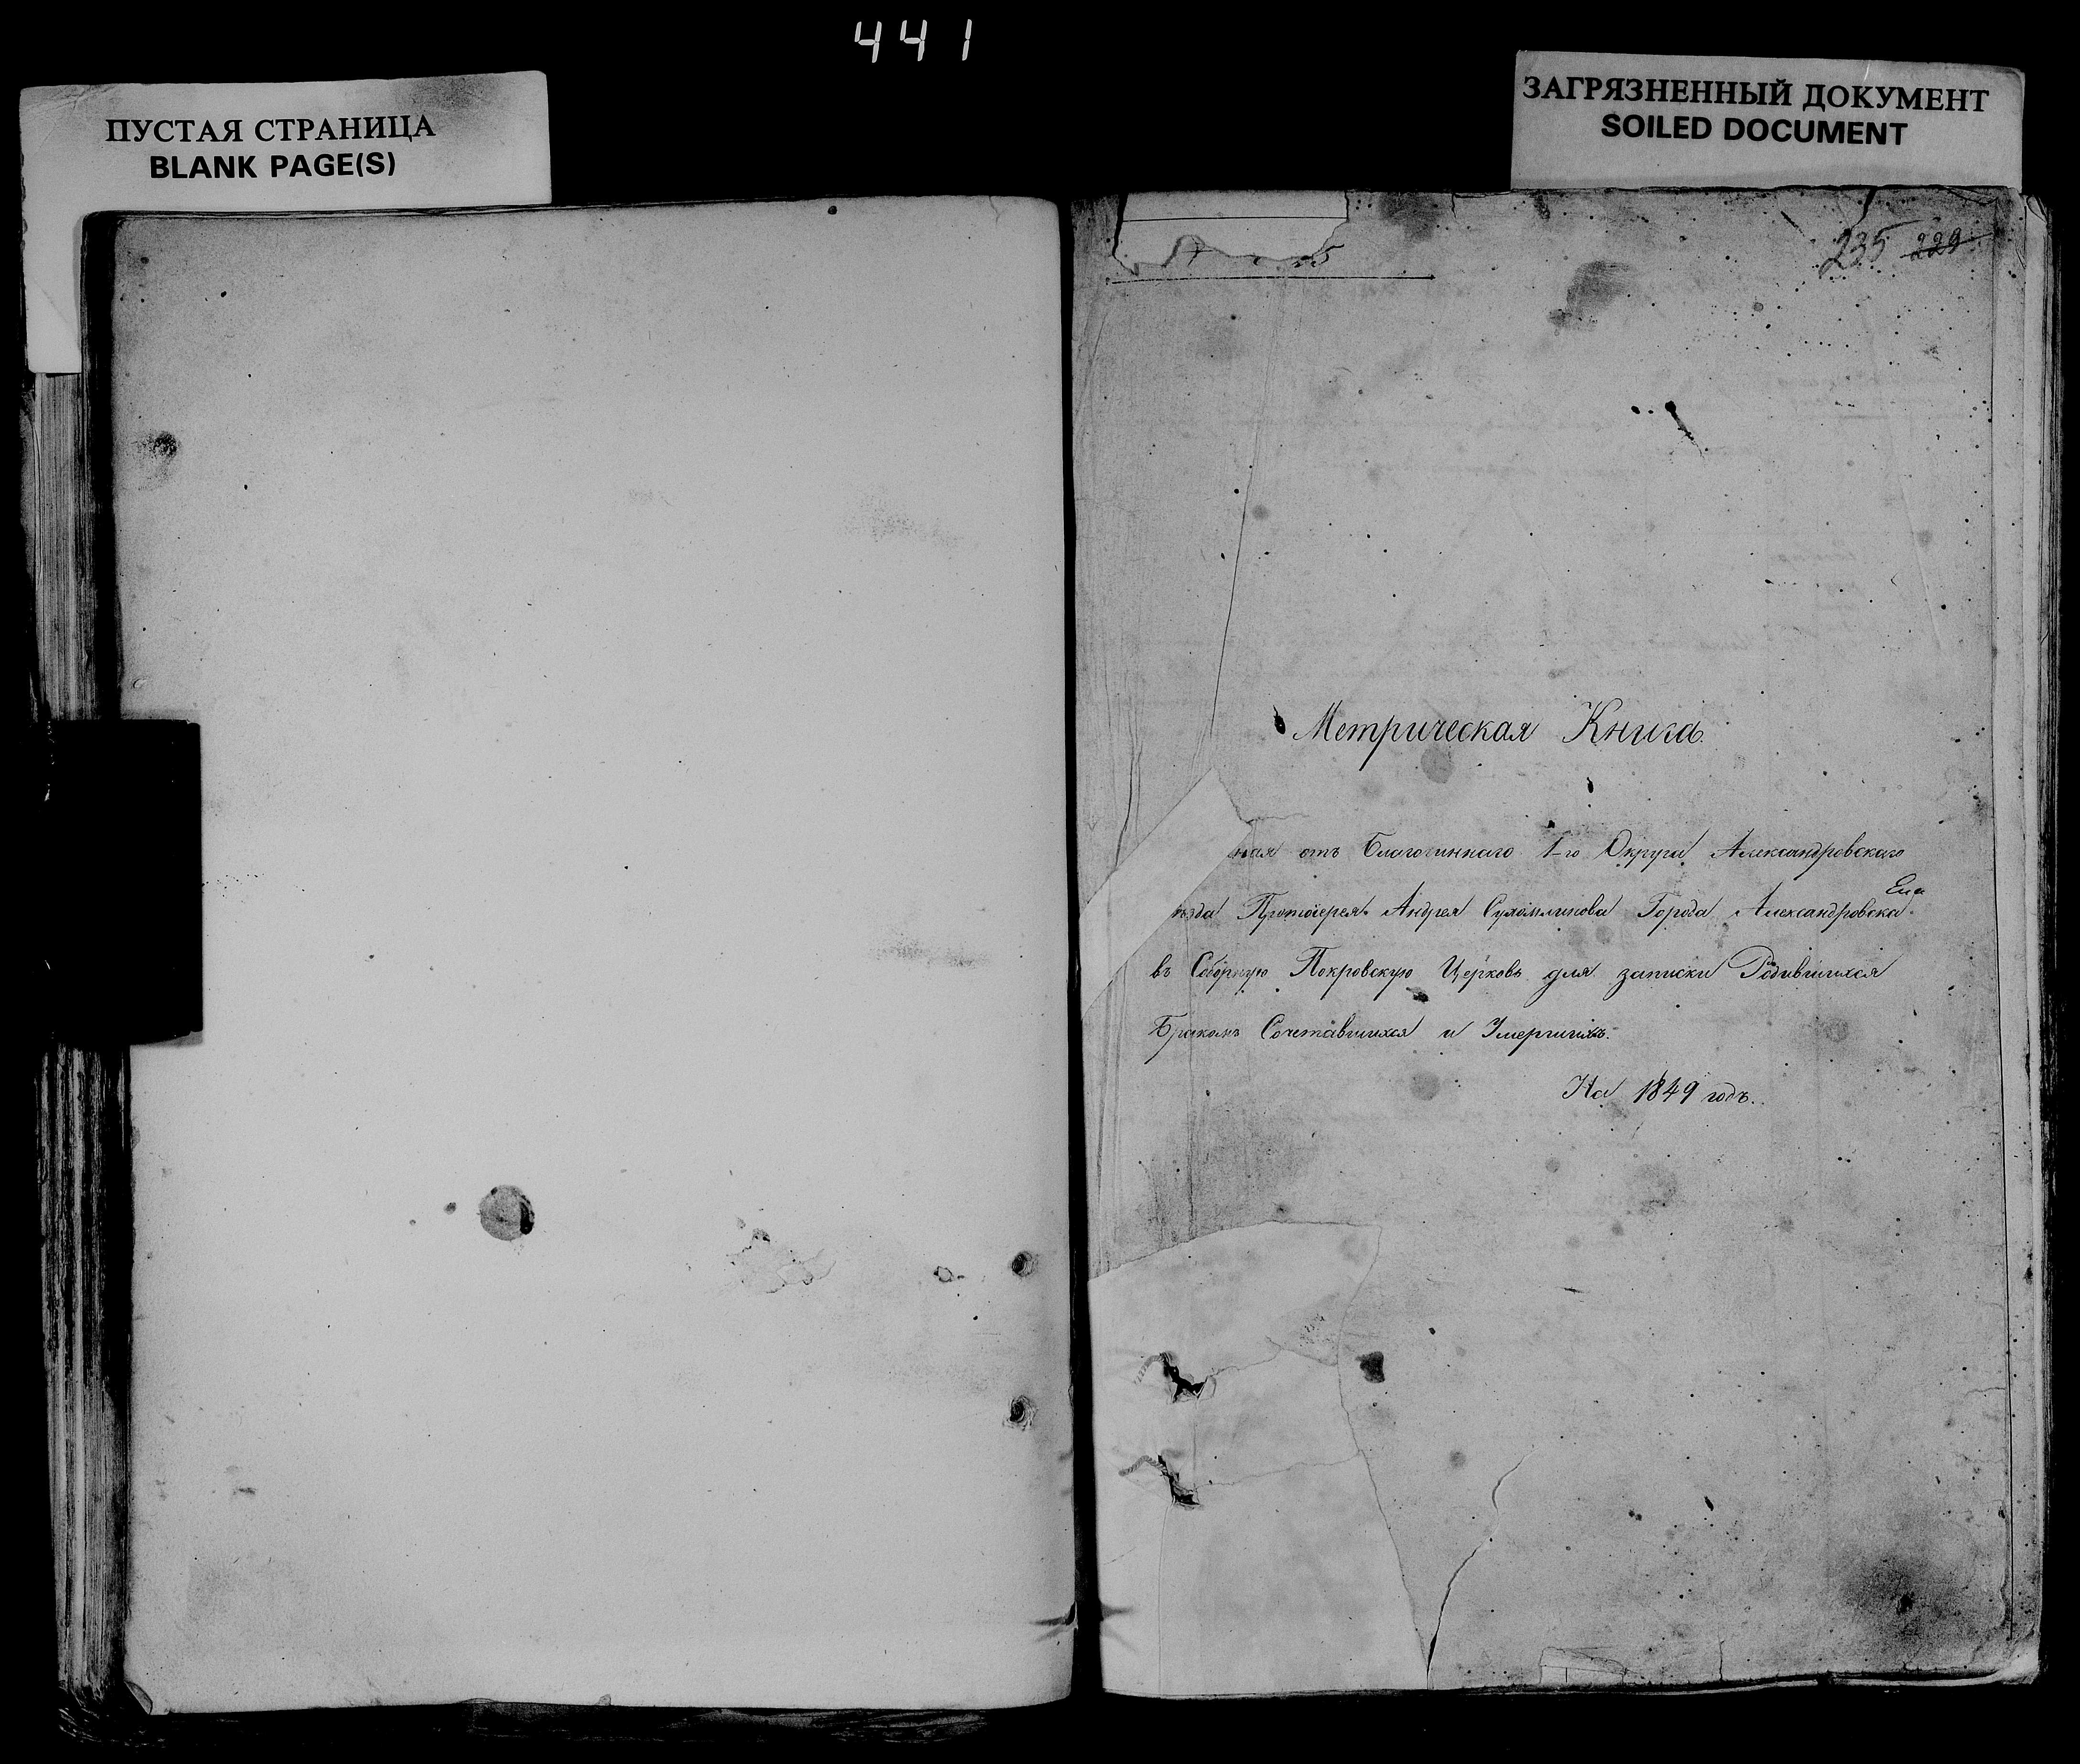 441
ПУСТАЯ СТРАНИЦА
BLANK PAGE(S)
ЗАГРЯЗНЕННЫЙ ДОКУМЕНТ
SOILED DOCUMENT
235 229
Метрическая Книга.
ная отъ Благочиннаго 1-го Округа Александровскаго
ѣзда Протоіерея Андрея Сухомлинова Города Александровска
въ Соборную Покровскую Церковь для записки Родившихся
Бракомъ Сочетавшихся и Умершихъ.
На 1849 годъ.